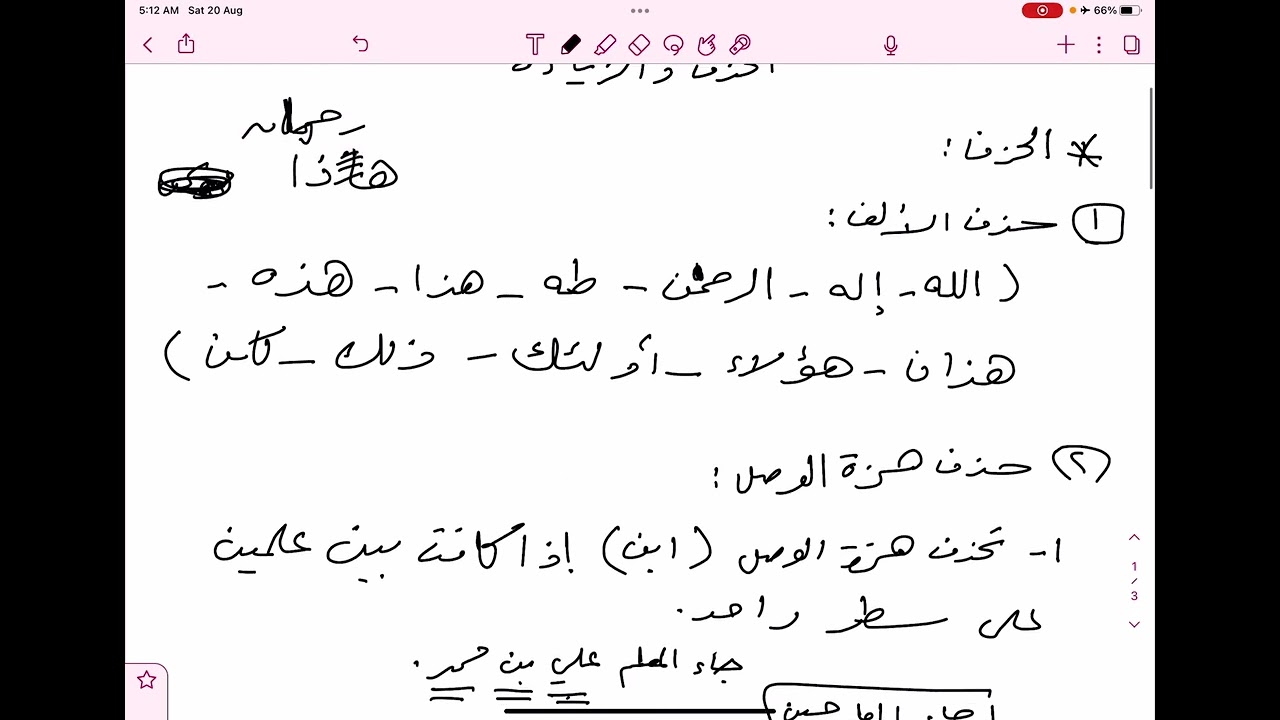 5:12 AM Sat 20 Aug
66%
الحذف والزيادة
رحمان
هاذا
* الحذف :
١ حذف الألف :
( الله - إله - الرحمن - طه - هذا - هذه -
هذان - هؤلاء - أولئك - ذلك - لكن )
٢ حذف همزة الوصل :
١- تحذف همزة الوصل (ابن) إذا كانت بين علمين
على سطر واحد.
جاء المعلم علي بن محمد.
حسين
1
/
3